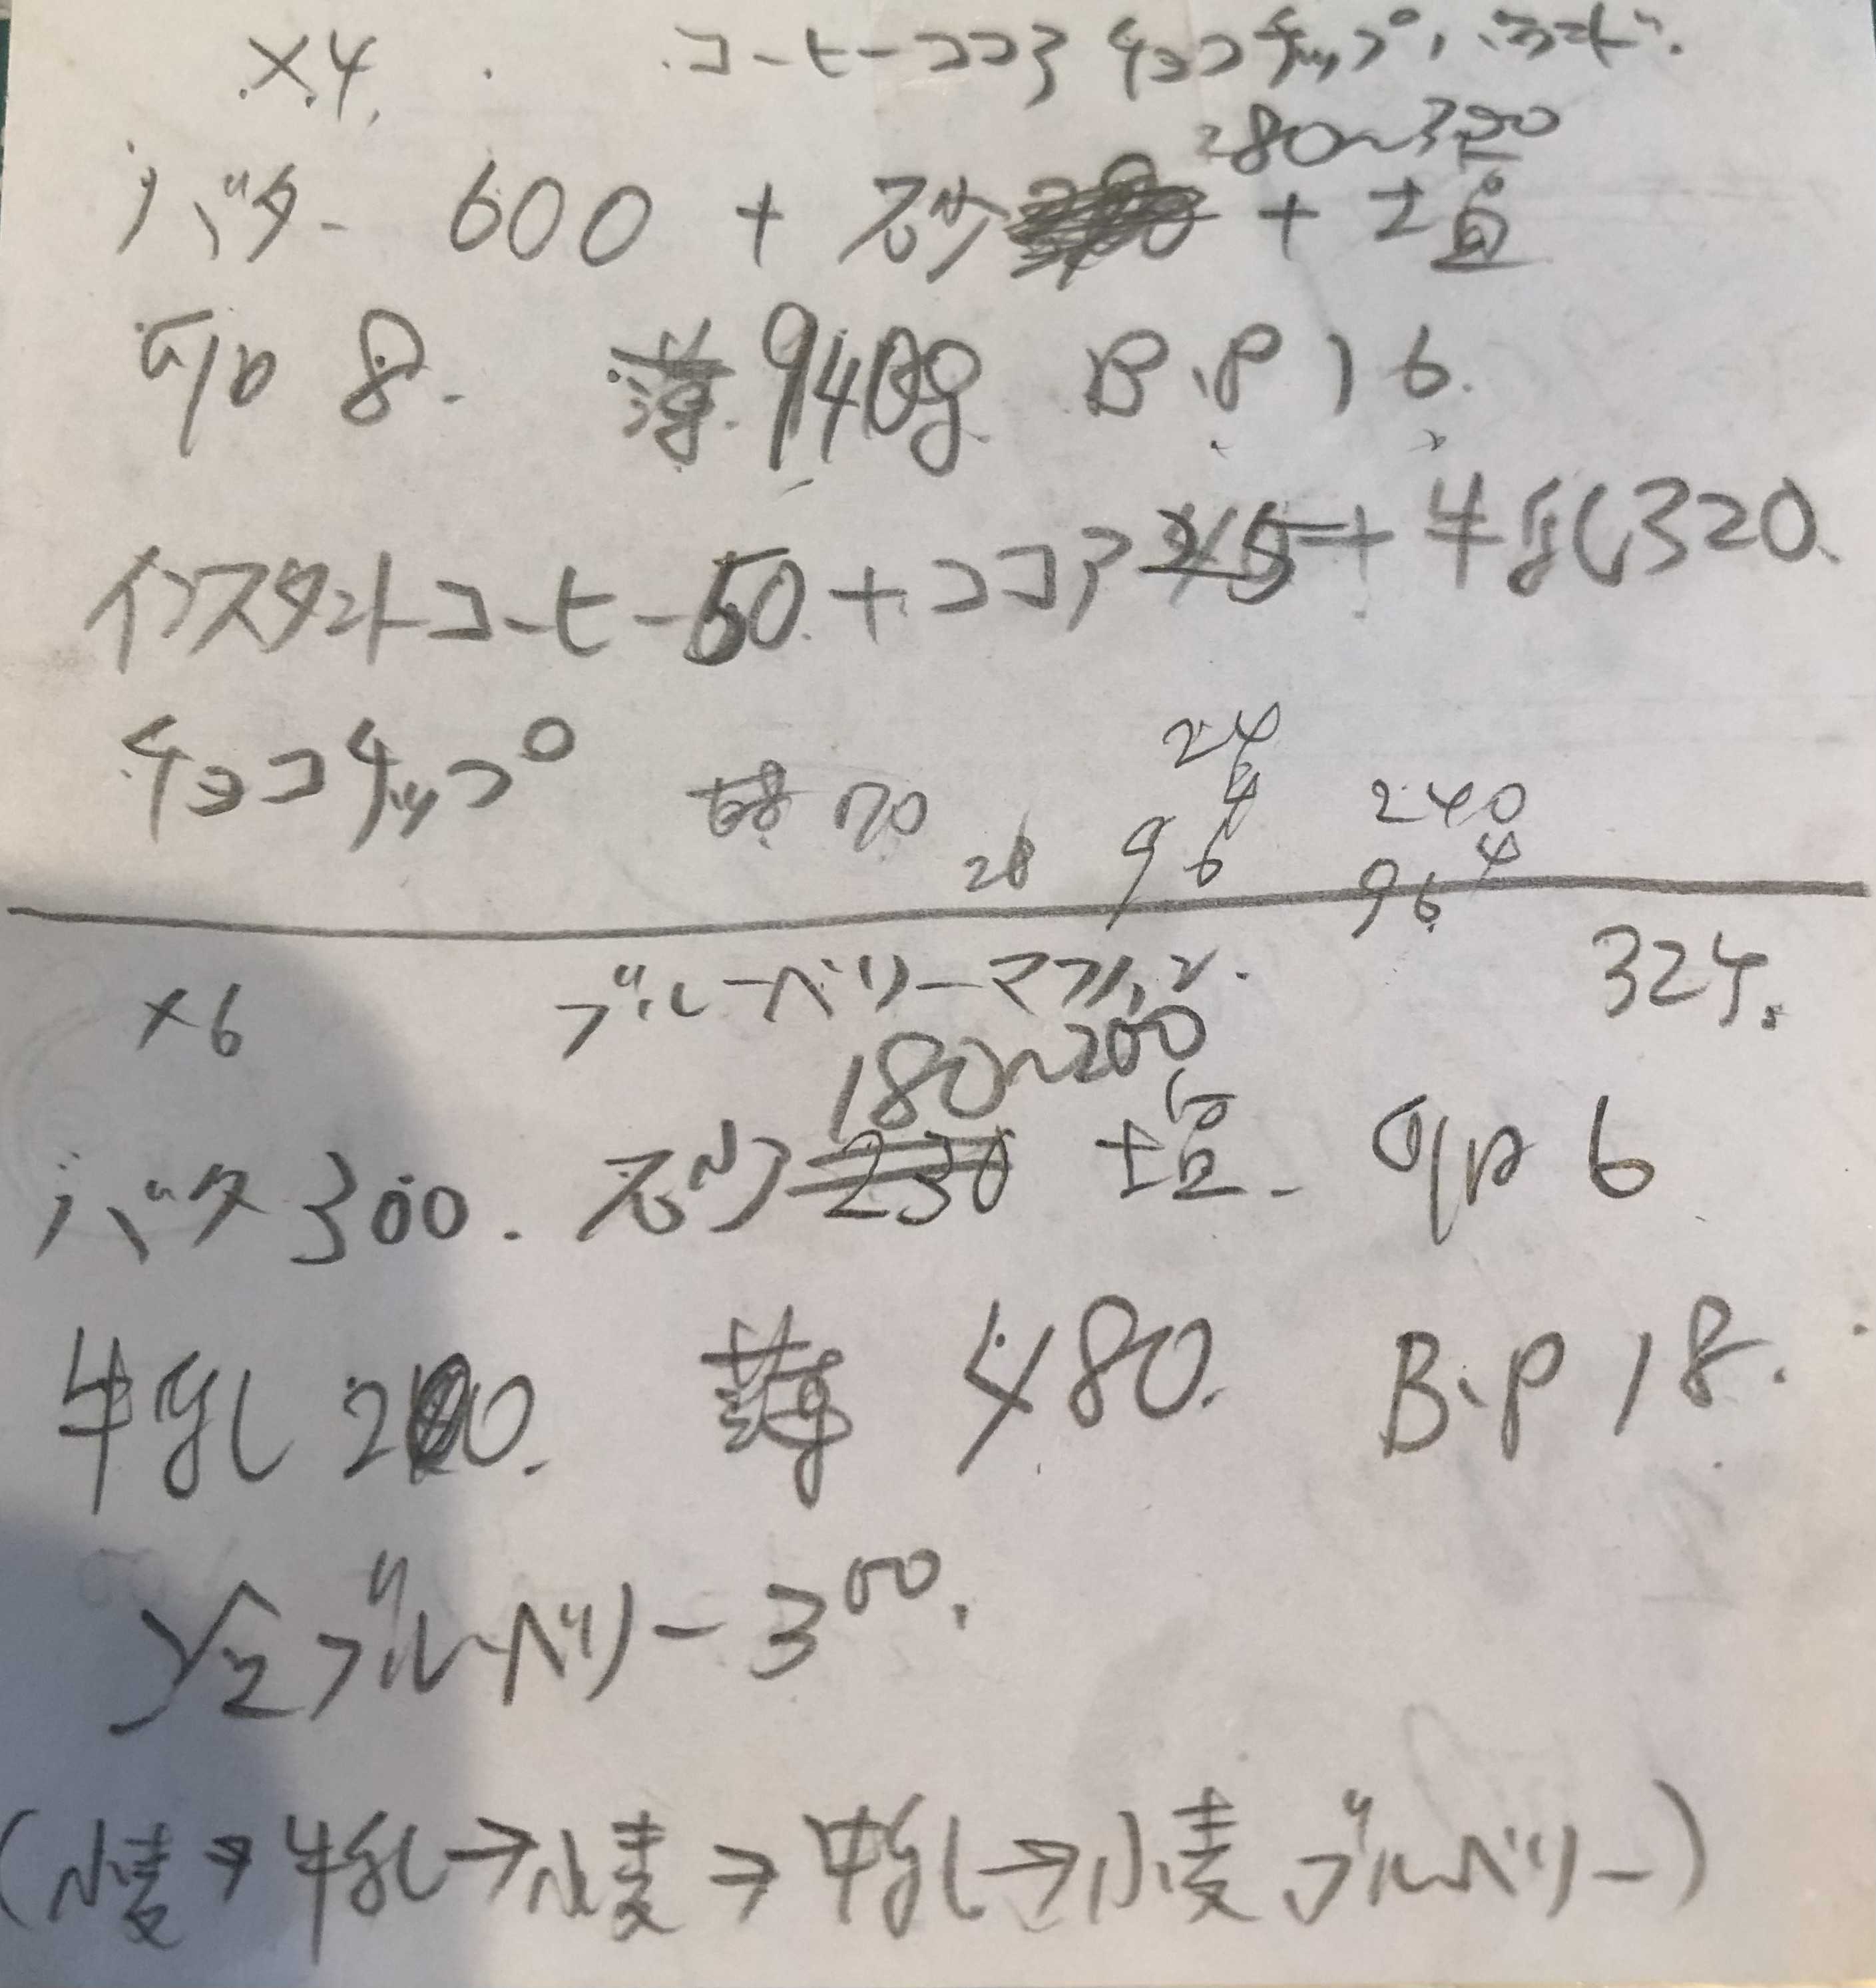 ×4. コーヒーココア チョコチップ
280~320
バター 600 + 砂 + 塩
卵 8. 薄 940g B.P 16.
インスタントコーヒー50. + ココア + 牛乳320.
チョコチップ 70
24
4 240
28 96 4
96
×6 ブルーベリーマフィン. 324.
180~200
バタ 300. 砂 230 塩. 卵 6
牛乳 200. 薄 480. B.P 18.
ブルーベリー 300.
(小麦→牛乳→小麦→牛乳→小麦 ブルーベリー)